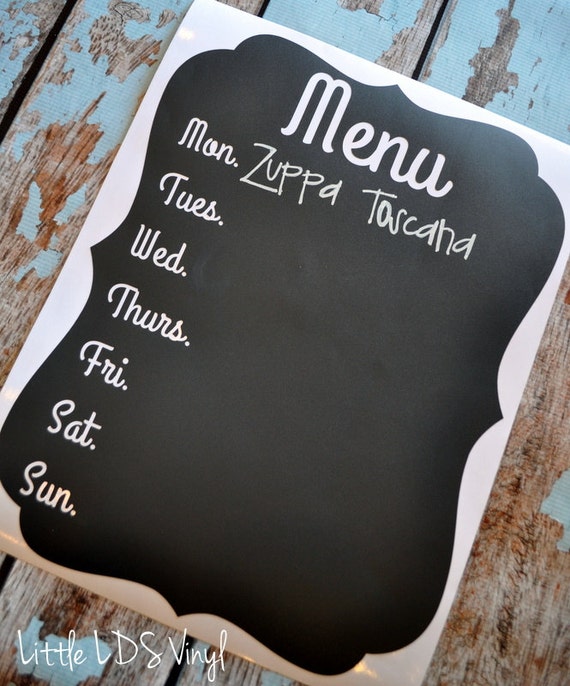 Menu
Mon. Zuppa Toscana
Tues.
Wed.
Thurs.
Fri.
Sat.
Sun.
Little LDS Vinyl